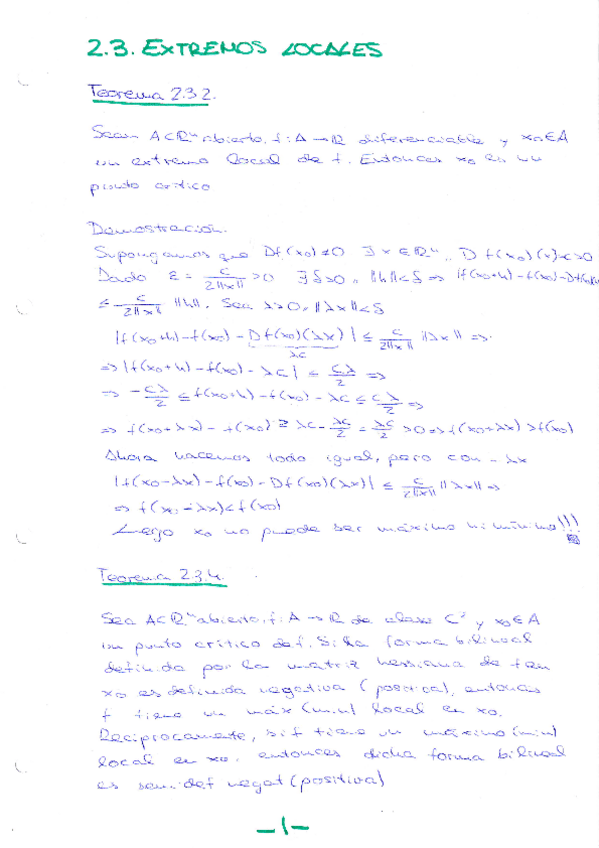 2.3. EXTREMOS LOCALES
Teorema 2.3.2.
Sean A⊂ℝⁿ abierto, f: A → ℝ diferenciable y x₀∈A
un extremo local de f. Entonces x₀ es un
punto crítico
Demostración.
Supongamos que Df(x₀)≠0 ∃x∈ℝⁿ, Df(x₀)(x)=c>0
Dado ε = c/(2‖x‖) >0 ∃δ>0, ‖h‖<δ ⇒ |f(x₀+h)-f(x₀)-Df(x₀)(h)|
≤ c/(2‖x‖) ‖h‖. Sea λ>0, ‖λx‖<δ
|f(x₀+h)-f(x₀)-Df(x₀)(λx)| ≤ c/(2‖x‖) ‖λx‖ ⇒
λc
⇒ |f(x₀+h)-f(x₀)-λc| ≤ cλ/2 ⇒
⇒ -cλ/2 ≤ f(x₀+h)-f(x₀)-λc ≤ cλ/2 ⇒
⇒ f(x₀+λx)-f(x₀) ≥ λc - λc/2 = λc/2 >0 ⇒ f(x₀+λx)>f(x₀)
Ahora hacemos todo igual, pero con -λx
|f(x₀-λx)-f(x₀)-Df(x₀)(λx)| ≤ c/(2‖x‖) ‖λx‖ ⇒
⇒ f(x₀-λx)<f(x₀)
Luego x₀ no puede ser máximo ni mínimo!!!
Teorema 2.3.4.
Sea A⊂ℝⁿ abierto, f: A → ℝ de clase C² y x₀∈A
un punto crítico de f. Si la forma bilineal
definida por la matriz hessiana de f en
x₀ es definida negativa (positiva), entonces
f tiene un máx (mín) local en x₀.
Recíprocamente, si f tiene un máximo (mín)
local en x₀, entonces dicha forma bilineal
es semidef negat (positiva)
-1-